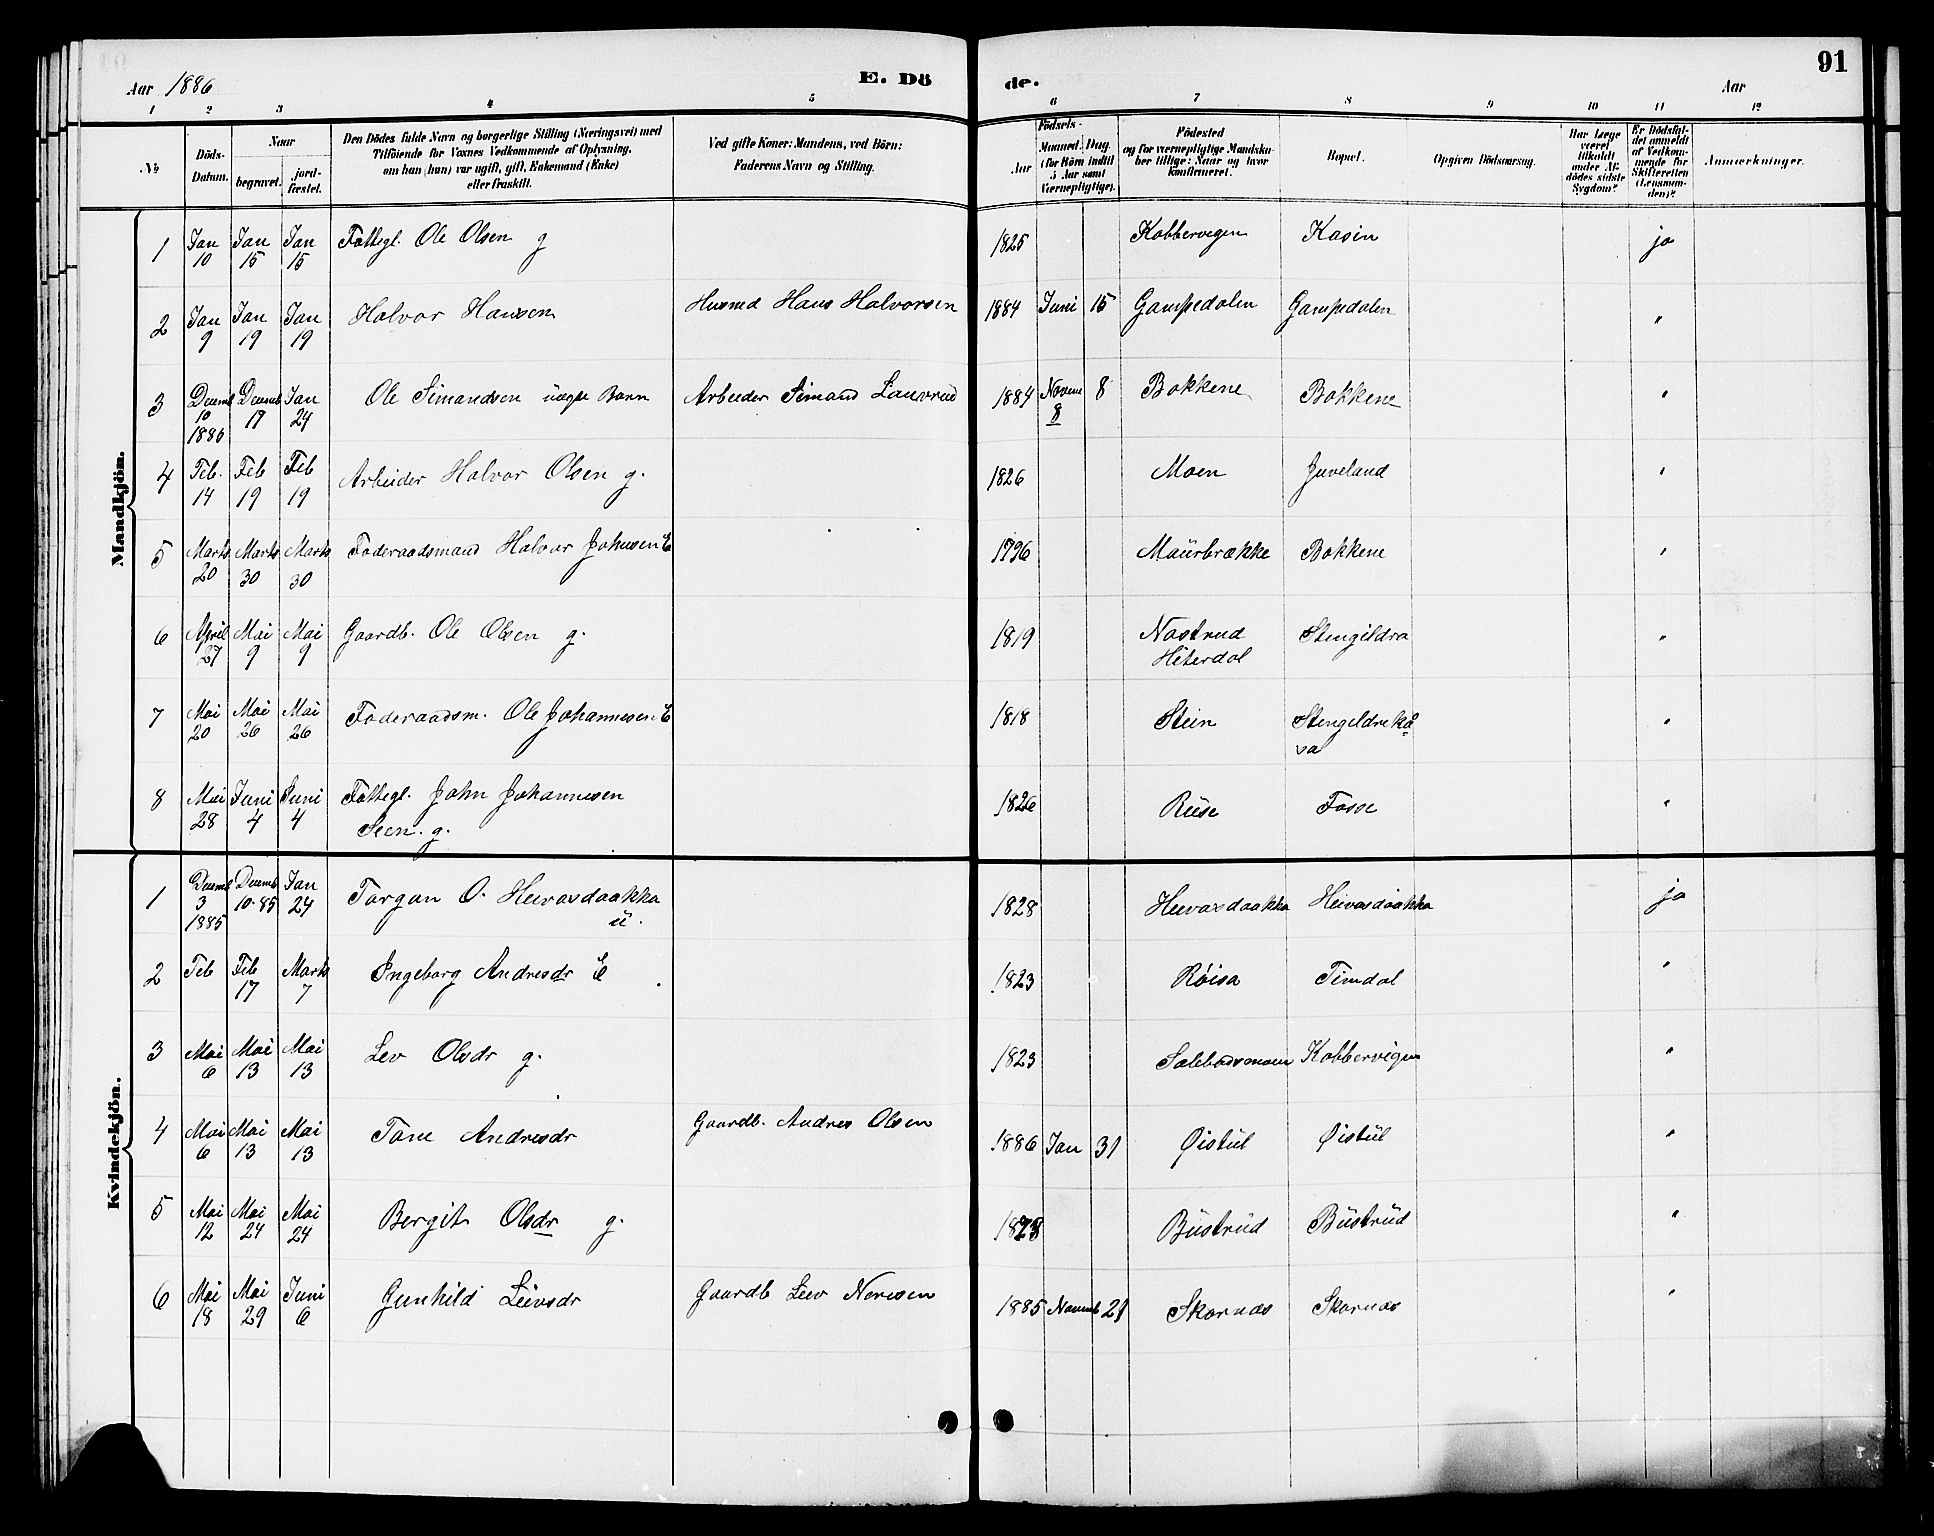 91
Aar 1886 E. Dö de. Aar
1 2 3 4 5 6 7 8 9 10 11 12
No
Döds-Datum.
Naar
begravet.
jordfæstet.
Den Dödes fulde Navn og borgerlige Stilling (Næringsvei) med
Tilföiende for Voxnes Vedkommende af Oplysning,
om han (hun) var ugift, gift, Enkemand (Enke)
eller fraskilt.
Ved gifte Koner: Mandens, ved Börn:
Faderens Navn og Stilling.
Födsels-
Aar
Maaned. Dag
(for Börn indtil
5 Aar samt
Værnepligtige).
Födested
og for værnepligtige Mandskaber tillige: Naar og hvor
konfirmeret.
Bopæl.
Opgiven Dödsaarsag.
Har Læge
været
tilkaldt
under Afdödes sidste
Sygdom?
Er Dödsfaldet anmeldt
af Vedkommende for
Skifteretten
(Lensmanden)?
Anmærkninger.
Mandkjön.
1 Jan 10 Jan 15 Jan 15 Fattegl. Ole Olsen g 1825 Kobbervigen Kasin ja
2 Jan 9 Jan 19 Jan 19 Halvor Hansen Husmd Hans Halvorsen 1884 Juni 15 Gampedalen Gampedalen "
3 Decemb 10 1885 Decemb 17 Jan 24 Ole Simandsen uægte Barn Arbeider Simand Lauvrud 1884 Novem 8 8 Bakkene Bakkene "
4 Feb. 14 Feb 19 Feb 19 Arbeider Halvor Olsen g. 1826 Moen Juveland "
5 Marts 20 Marts 30 Marts 30 Foderaadsmand Halvor Johnsen E 1796 Maurbrække Bakkene "
6 April 27 Mai 9 Mai 9 Gaardb. Ole Olsen g. 1819 Nastrud Hiterdal Stengildra "
7 Mai 20 Mai 26 Mai 26 Foderaadsm. Ole Johannesen E 1818 Stein Stengeldrekåsa "
8 Mai 28 Juni 4 Juni 4 Fattegl. John Johannesen
Seen. g. Riise Fosse "
Kvindekjön.
1 Decemb 3 1885 Decemb 10-85 Jan 24 Torgon O. Heivasdaakka
u. 1828 Heivasdaakka Heivasdaakka ja
2 Feb Feb 17 Marts 7 Ingeborg Andresdr E 1823 Röisa Timdal "
3 Mai 6 Mai 13 Mai 13 Lev Olsdr g. 1823 Salebudsmoen Kobbervigen "
4 Mai 6 Mai 13 Mai 13 Tone Andresdr Gaardb. Andres Olsen 1886 Jan 31 Øistul Øistul "
5 Mai 12 Mai 24 Mai 24 Bergit Olsdr g. Bustrud Bustrud "
6 Mai 18 Mai 29 Juni 6 Gunhild Leivsdr Gaardb Leiv Neresen 1885 Novemb 21 Skornæs Skornæs "